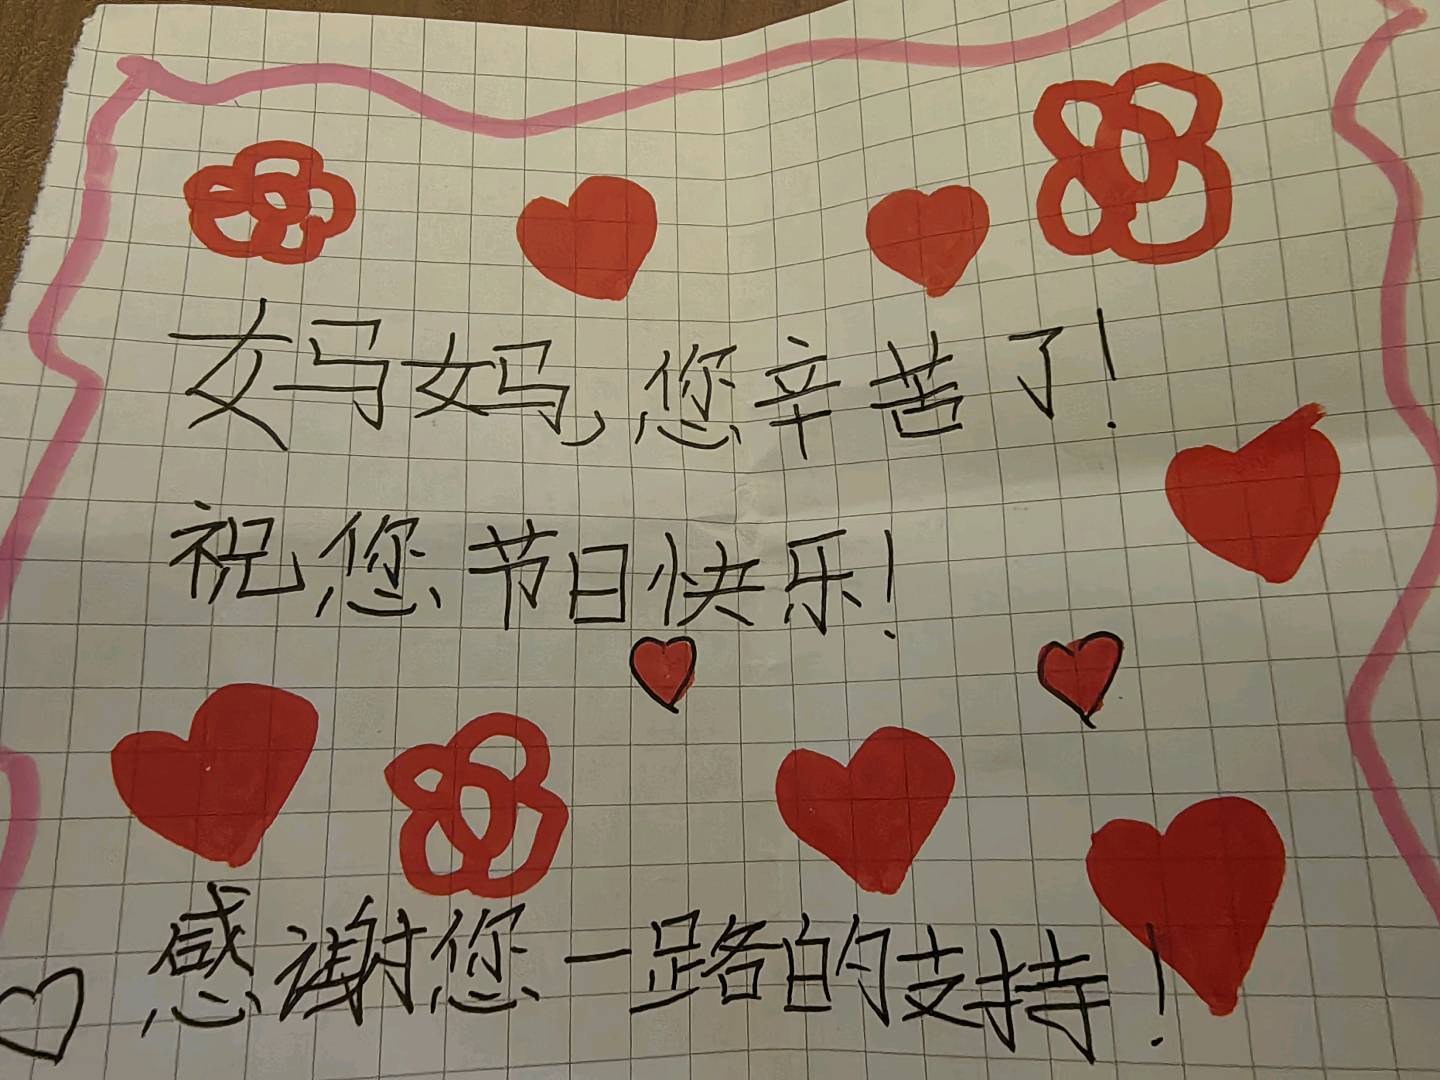 妈妈，您辛苦了！
祝您节日快乐！
感谢您一路的支持！